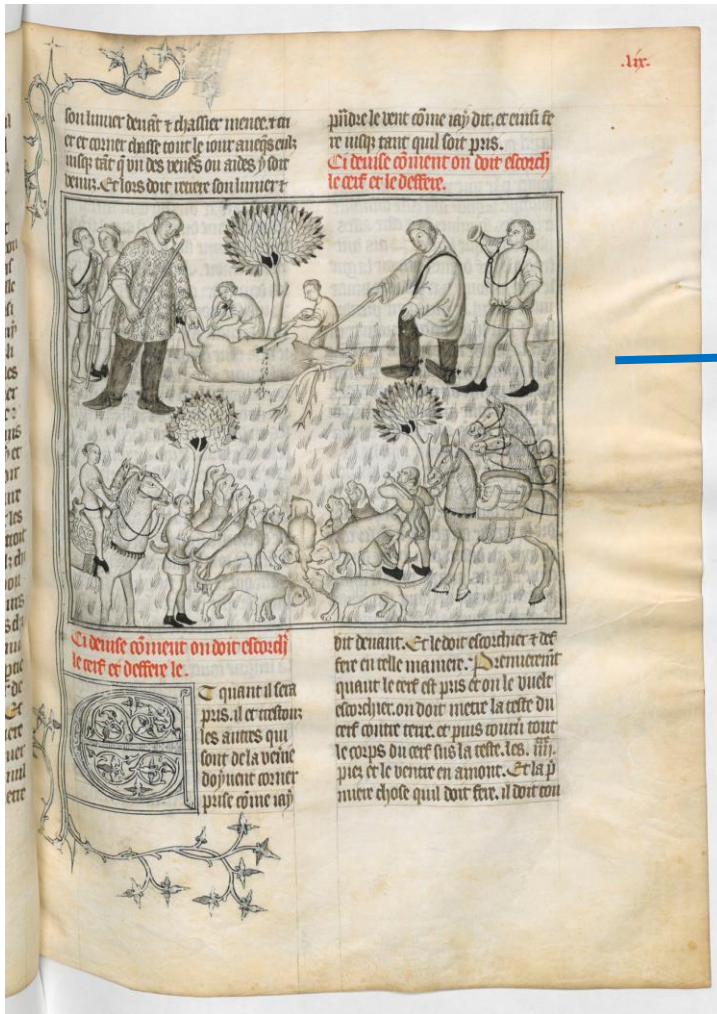 .lix.
son limier deuāt ⁊ chassier menee. ⁊ cri
er et corner chasse tout le iour auecqs eulz
iusqs tāt q̄ vn des venes ou aides y soit
venuz. Et lors doit retere son limier ⁊
pn̄dre le vent cōme iay dit. et einsi fe
re iusqs tant quil soit pris.
Ci deuise cōment on doit escorch
le cerf et le deffere.
Ci deuise cōment on doit escorch
le cerf et deffere le.
Et quant il sera
pris. il et trestouz
les autres qui
sont de la venue
doyuent corner
prise cōme iay
dit deuant. Et le doit escorchier ⁊ def
fere en telle maniere. Premieremt
quant le cerf est pris et on le vuelt
escorchier. on doit metre la teste du
cerf contre terre. et puis tourn tout
le corps du cerf sus la teste. les .iiii.
piez et le ventre en amont. Et la p̄
miere chose quil doit fere. il doit cou